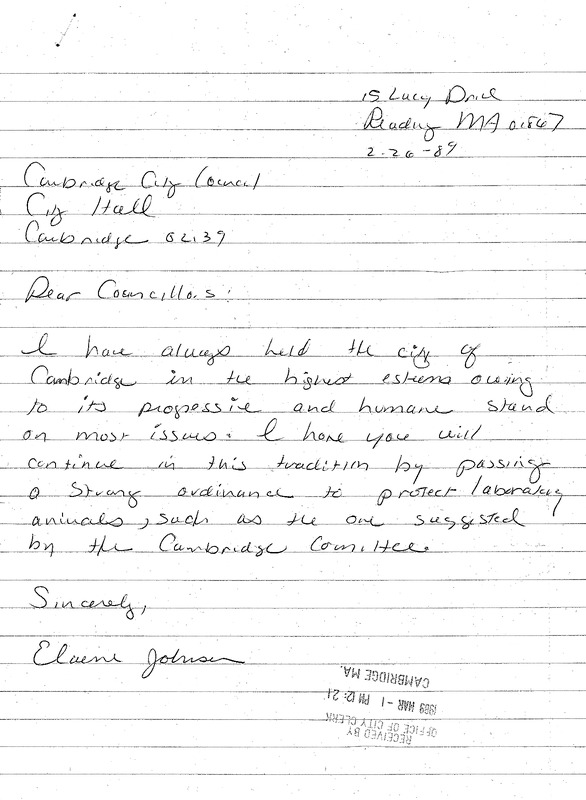 15 Lucy Drive
Reading MA 01867
2-26-89
Cambridge City Council
City Hall
Cambridge 02139
Dear Councillors:
I have always held the city of
Cambridge in the highest esteem owing
to its progressive and humane stand
on most issues. I hope you will
continue in this tradition by passing
a strong ordinance to protect laboratory
animals, such as the one suggested
by the Cambridge Committee.
Sincerely,
Elaine Johnson
RECEIVED BY
OFFICE OF CITY CLERK
1989 MAR -1 PM 12:21
CAMBRIDGE MA.